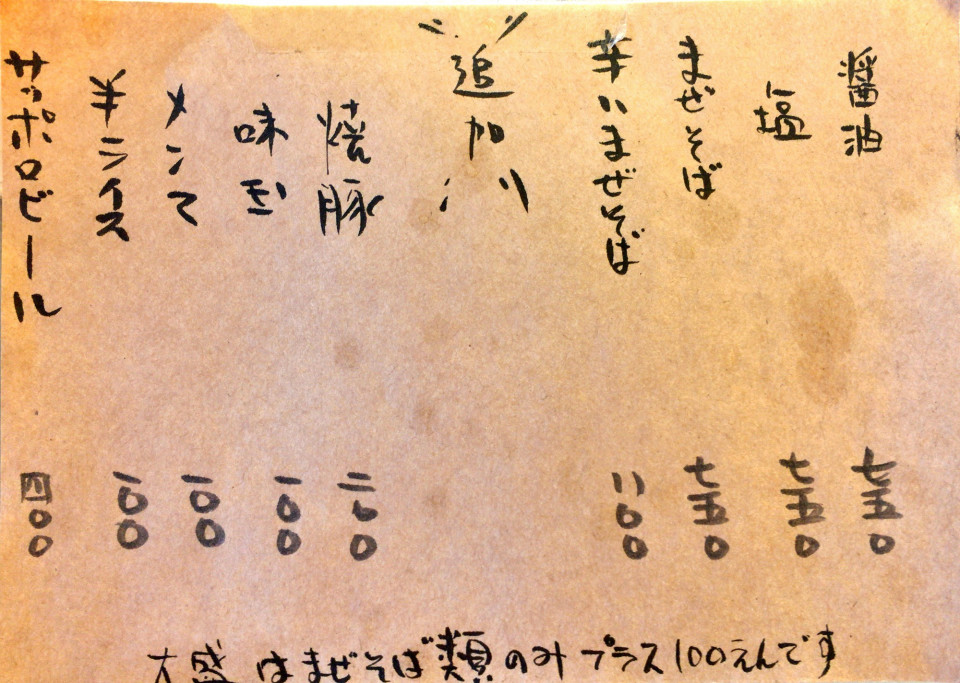 醤油 七五〇
塩 七五〇
まぜそば 七五〇
辛いまぜそば 八〇〇
追加
焼豚 二〇〇
味玉 一〇〇
メンマ 一〇〇
半ライス 一〇〇
サッポロビール 四〇〇
大盛はまぜそば類のみプラス100えんです